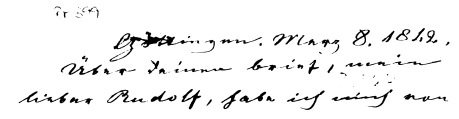 Göttingen. März 8. 1842.
Über deinen brief, mein
lieber Rudolf, habe ich mich von